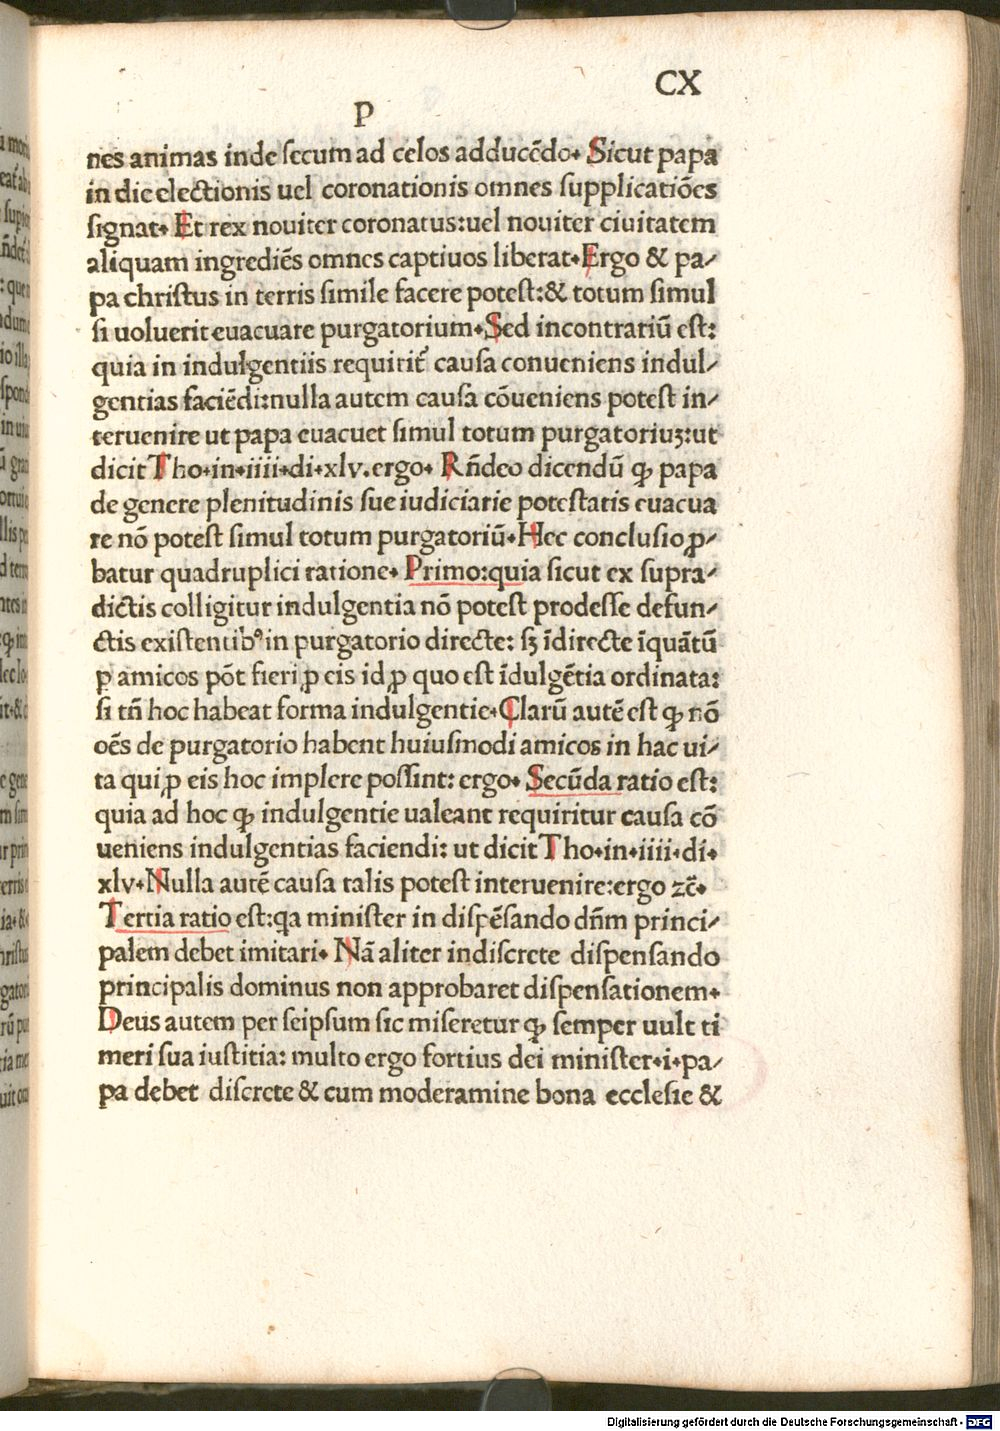 CX
P
nes animas inde ſecum ad celos adducẽdo. Sicut papa
in die electionis uel coronationis omnes ſupplicatiões
ſignat. Et rex nouiter coronatus:uel nouiter ciuitatem
aliquam ingrediẽs omnes captiuos liberat. Ergo & pa⸗
pa chriſtus in terris ſimile facere poteſt:& totum ſimul
ſi uoluerit euacuare purgatorium. Sed incontrariũ eſt:
quia in indulgentiis requirit᷑ cauſa conueniens indul⸗
gentias faciẽdi:nulla autem cauſa cõueniens poteſt in⸗
teruenire ut papa euacuet ſimul totum purgatoriuꝫ:ut
dicit Tho.in.iiii.di.xlv.ergo. Rñdeo dicendũ ꝙ papa
de genere plenitudinis ſue iudiciarie poteſtatis euacua
re nõ poteſt ſimul totum purgatoriũ. Hec concluſio ꝓ⸗
batur quadruplici ratione. Primo:quia ſicut ex ſupra⸗
dictis colligitur indulgentia nõ poteſt prodeſſe defun⸗
ctis exiſtentibꝰ in purgatorio directe: ſꝫ ĩdirecte ĩquãtũ
ꝑ amicos põt fieri ꝓ eis id ꝓ quo eſt ĩdulgẽtia ordinata:
ſi tñ hoc habeat forma indulgentie. Clarũ autẽ eſt ꝙ nõ
oẽs de purgatorio habent huiuſmodi amicos in hac ui⸗
ta qui ꝓ eis hoc implere poſſint: ergo. Secũda ratio eſt:
quia ad hoc ꝙ indulgentie ualeant requiritur cauſa cõ
ueniens indulgentias faciendi: ut dicit Tho.in.iiii.di.
xlv. Nulla autẽ cauſa talis poteſt interuenire:ergo ⁊c̃.
Tertia ratio eſt:qa miniſter in diſpẽſando dñm princi⸗
palem debet imitari. Nã aliter indiſcrete diſpenſando
principalis dominus non approbaret diſpenſationem.
Deus autem per ſeipſum ſic miſeretur ꝙ ſemper uult ti
meri ſua iuſtitia: multo ergo fortius dei miniſter.i.pa⸗
pa debet diſcrete & cum moderamine bona eccleſie &
Digitalisierung gefördert durch die Deutsche Forschungsgemeinschaft - DFG